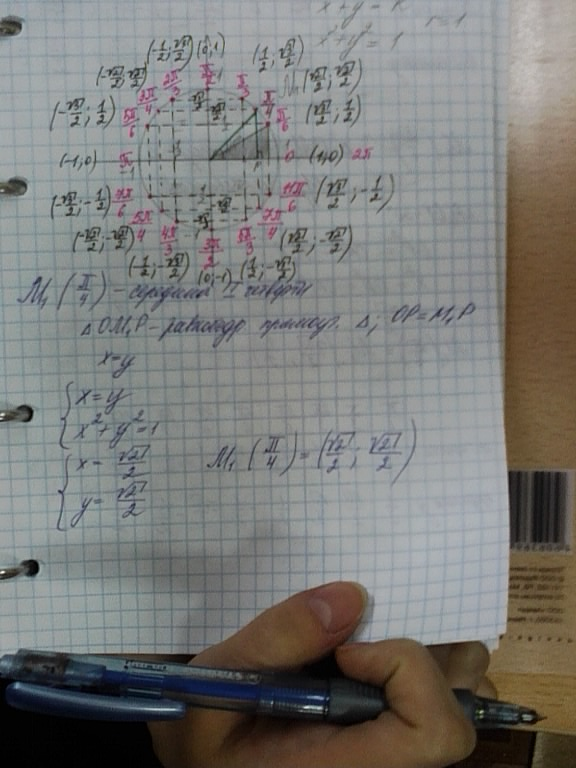 x + y = R
r = 1
x² + y² = 1
(-1/2; √3/2) (0;1) (1/2; √3/2)
(-√2/2; √2/2) 2π/3 π/2 π/3 M₁ (√2/2; √2/2)
(-√3/2; 1/2) 5π/6 3π/4 π/4 π/6 (√3/2; 1/2)
(-1;0) π 0 (1;0) 2π
(-√3/2; -1/2) 7π/6 11π/6 (√3/2; -1/2)
(-√2/2; -√2/2) 5π/4 4π/3 3π/2 5π/3 7π/4 (√2/2; -√2/2)
(-1/2; -√3/2) (0;-1) (1/2; -√3/2)
M₁ (π/4) - середина I четверти
△OM₁P - равнобедр. прямоуг. △; OP = M₁P
x = y
x = y
x² + y² = 1
x = √2/2
y = √2/2
M₁ (π/4) = (√2/2; √2/2)